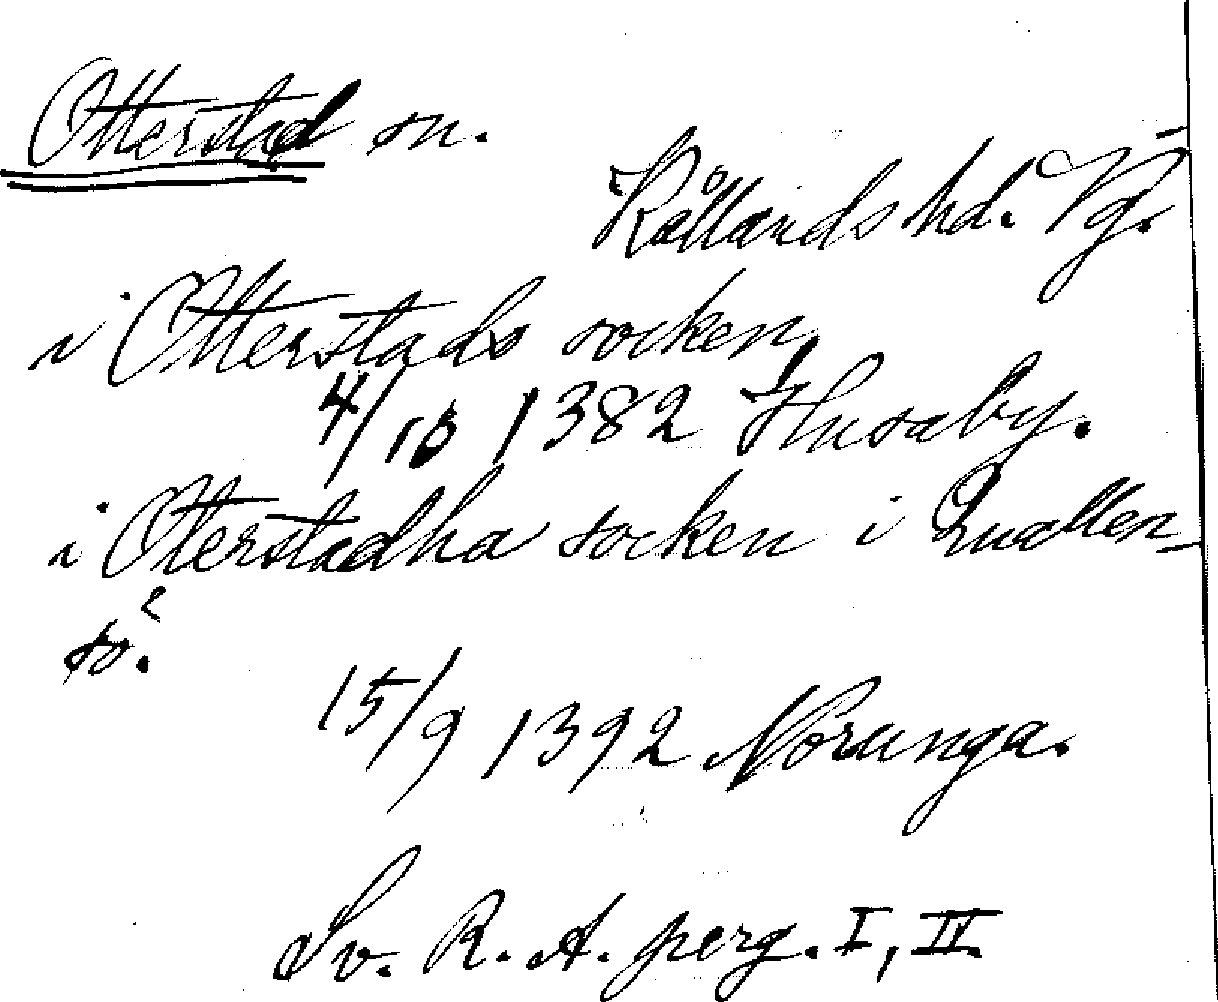 Otterstad sn.
Kållands hd. Vg.
i Otterstads socken,
4/10 1382 Husaby.
i Oterstadha socken i Quallen-
sö.
15/9 1392 Noranga.
Sv. R. A. perg. I, II.